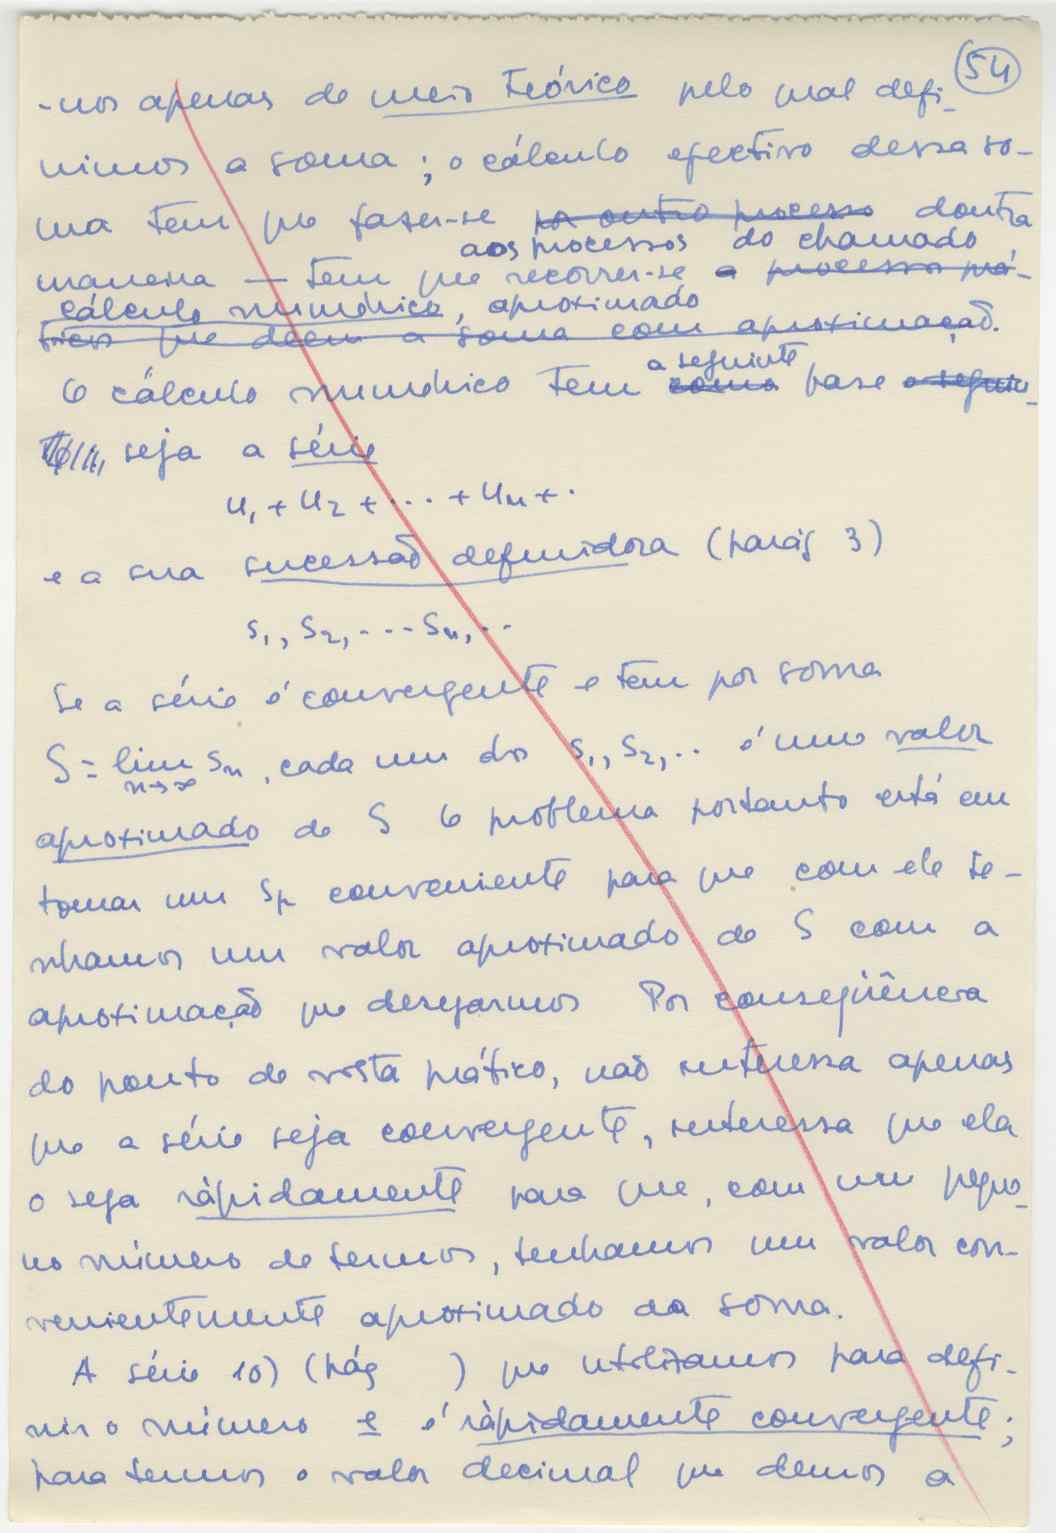 54
-nos apenas de meio teórico pelo qual defi-
nimos a soma; o cálculo efectivo dessa so-
ma tem que fazer-se por outro processo doutra
aos processos do chamado
maneira — tem que recorrer-se a processos prá-
cálculo numérico, aproximado
ticos que dêem a soma com aproximação.
O cálculo numérico tem como base o seguin-
a seguinte
seja a série
u₁ + u₂ + ... + uₙ + .
e a sua sucessão definidora (parág 3)
s₁, s₂, ... sₙ, ..
Se a série é convergente e tem por soma
S = lim sₙ, cada um dos s₁, s₂, .. é um valor
n→∞
aproximado de S O problema portanto está em
tomar um sₚ conveniente para que com ele te-
nhamos um valor aproximado de S com a
aproximação que desejarmos Por conseqüência
do ponto de vista prático, não interessa apenas
que a série seja convergente, interessa que ela
o seja ràpidamente para que, com um peque-
no número de termos, tenhamos um valor con-
venientemente aproximado da soma.
A série 10) (pág ) que utilizamos para defi-
nir o número e é ràpidamente convergente;
para termos o valor decimal que demos a